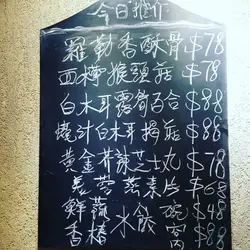 今日推介
羅勒香酥骨 $78
西檸猴頭菇 $78
白木耳露筍百合 $88
燒汁白木耳 菇 $88
黃金芥辣芝士丸 $78
蓉蒸 片 $68
鮮蔬 水餃 碗 $48
香椿 窩 $88